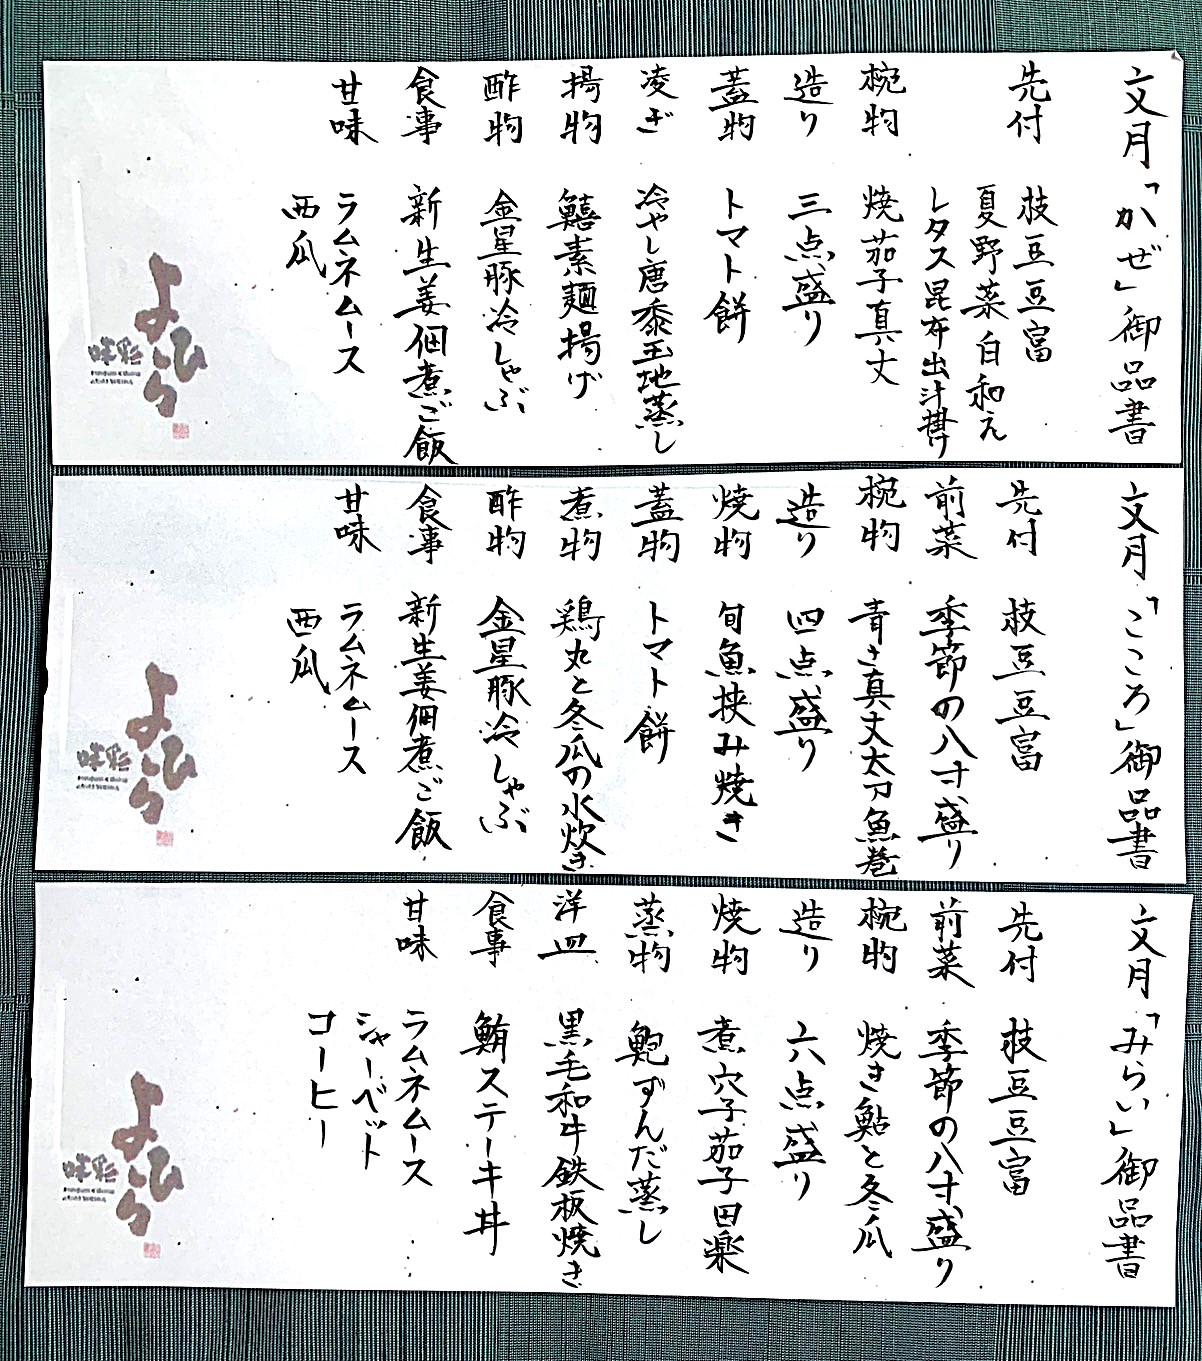 文月「かぜ」御品書
先付 枝豆豆富
夏野菜白和え
レタス昆布出汁掛け
椀物 焼茄子真丈
造り 三点盛り
蓋物 トマト餅
凌ぎ 冷やし唐黍玉地蒸し
揚物 鱚素麺揚げ
酢物 金星豚冷しゃぶ
食事 新生姜佃煮ご飯
甘味 ラムネムース
西瓜
よひら
文月「こころ」御品書
先付 枝豆豆富
前菜 季節の八寸盛り
椀物 青さ真丈太刀魚巻
造り 四点盛り
焼物 旬魚挟み焼き
蓋物 トマト餅
煮物 鶏丸と冬瓜の水炊き
酢物 金星豚冷しゃぶ
食事 新生姜佃煮ご飯
甘味 ラムネムース
西瓜
よひら
文月「みらい」御品書
先付 枝豆豆富
前菜 季節の八寸盛り
椀物 焼き鮎と冬瓜
造り 六点盛り
焼物 煮穴子茄子田楽
蒸物 鮑ずんだ蒸し
洋皿 黒毛和牛鉄板焼き
食事 鮪ステーキ丼
甘味 ラムネムース
シャーベット
コーヒー
よひら